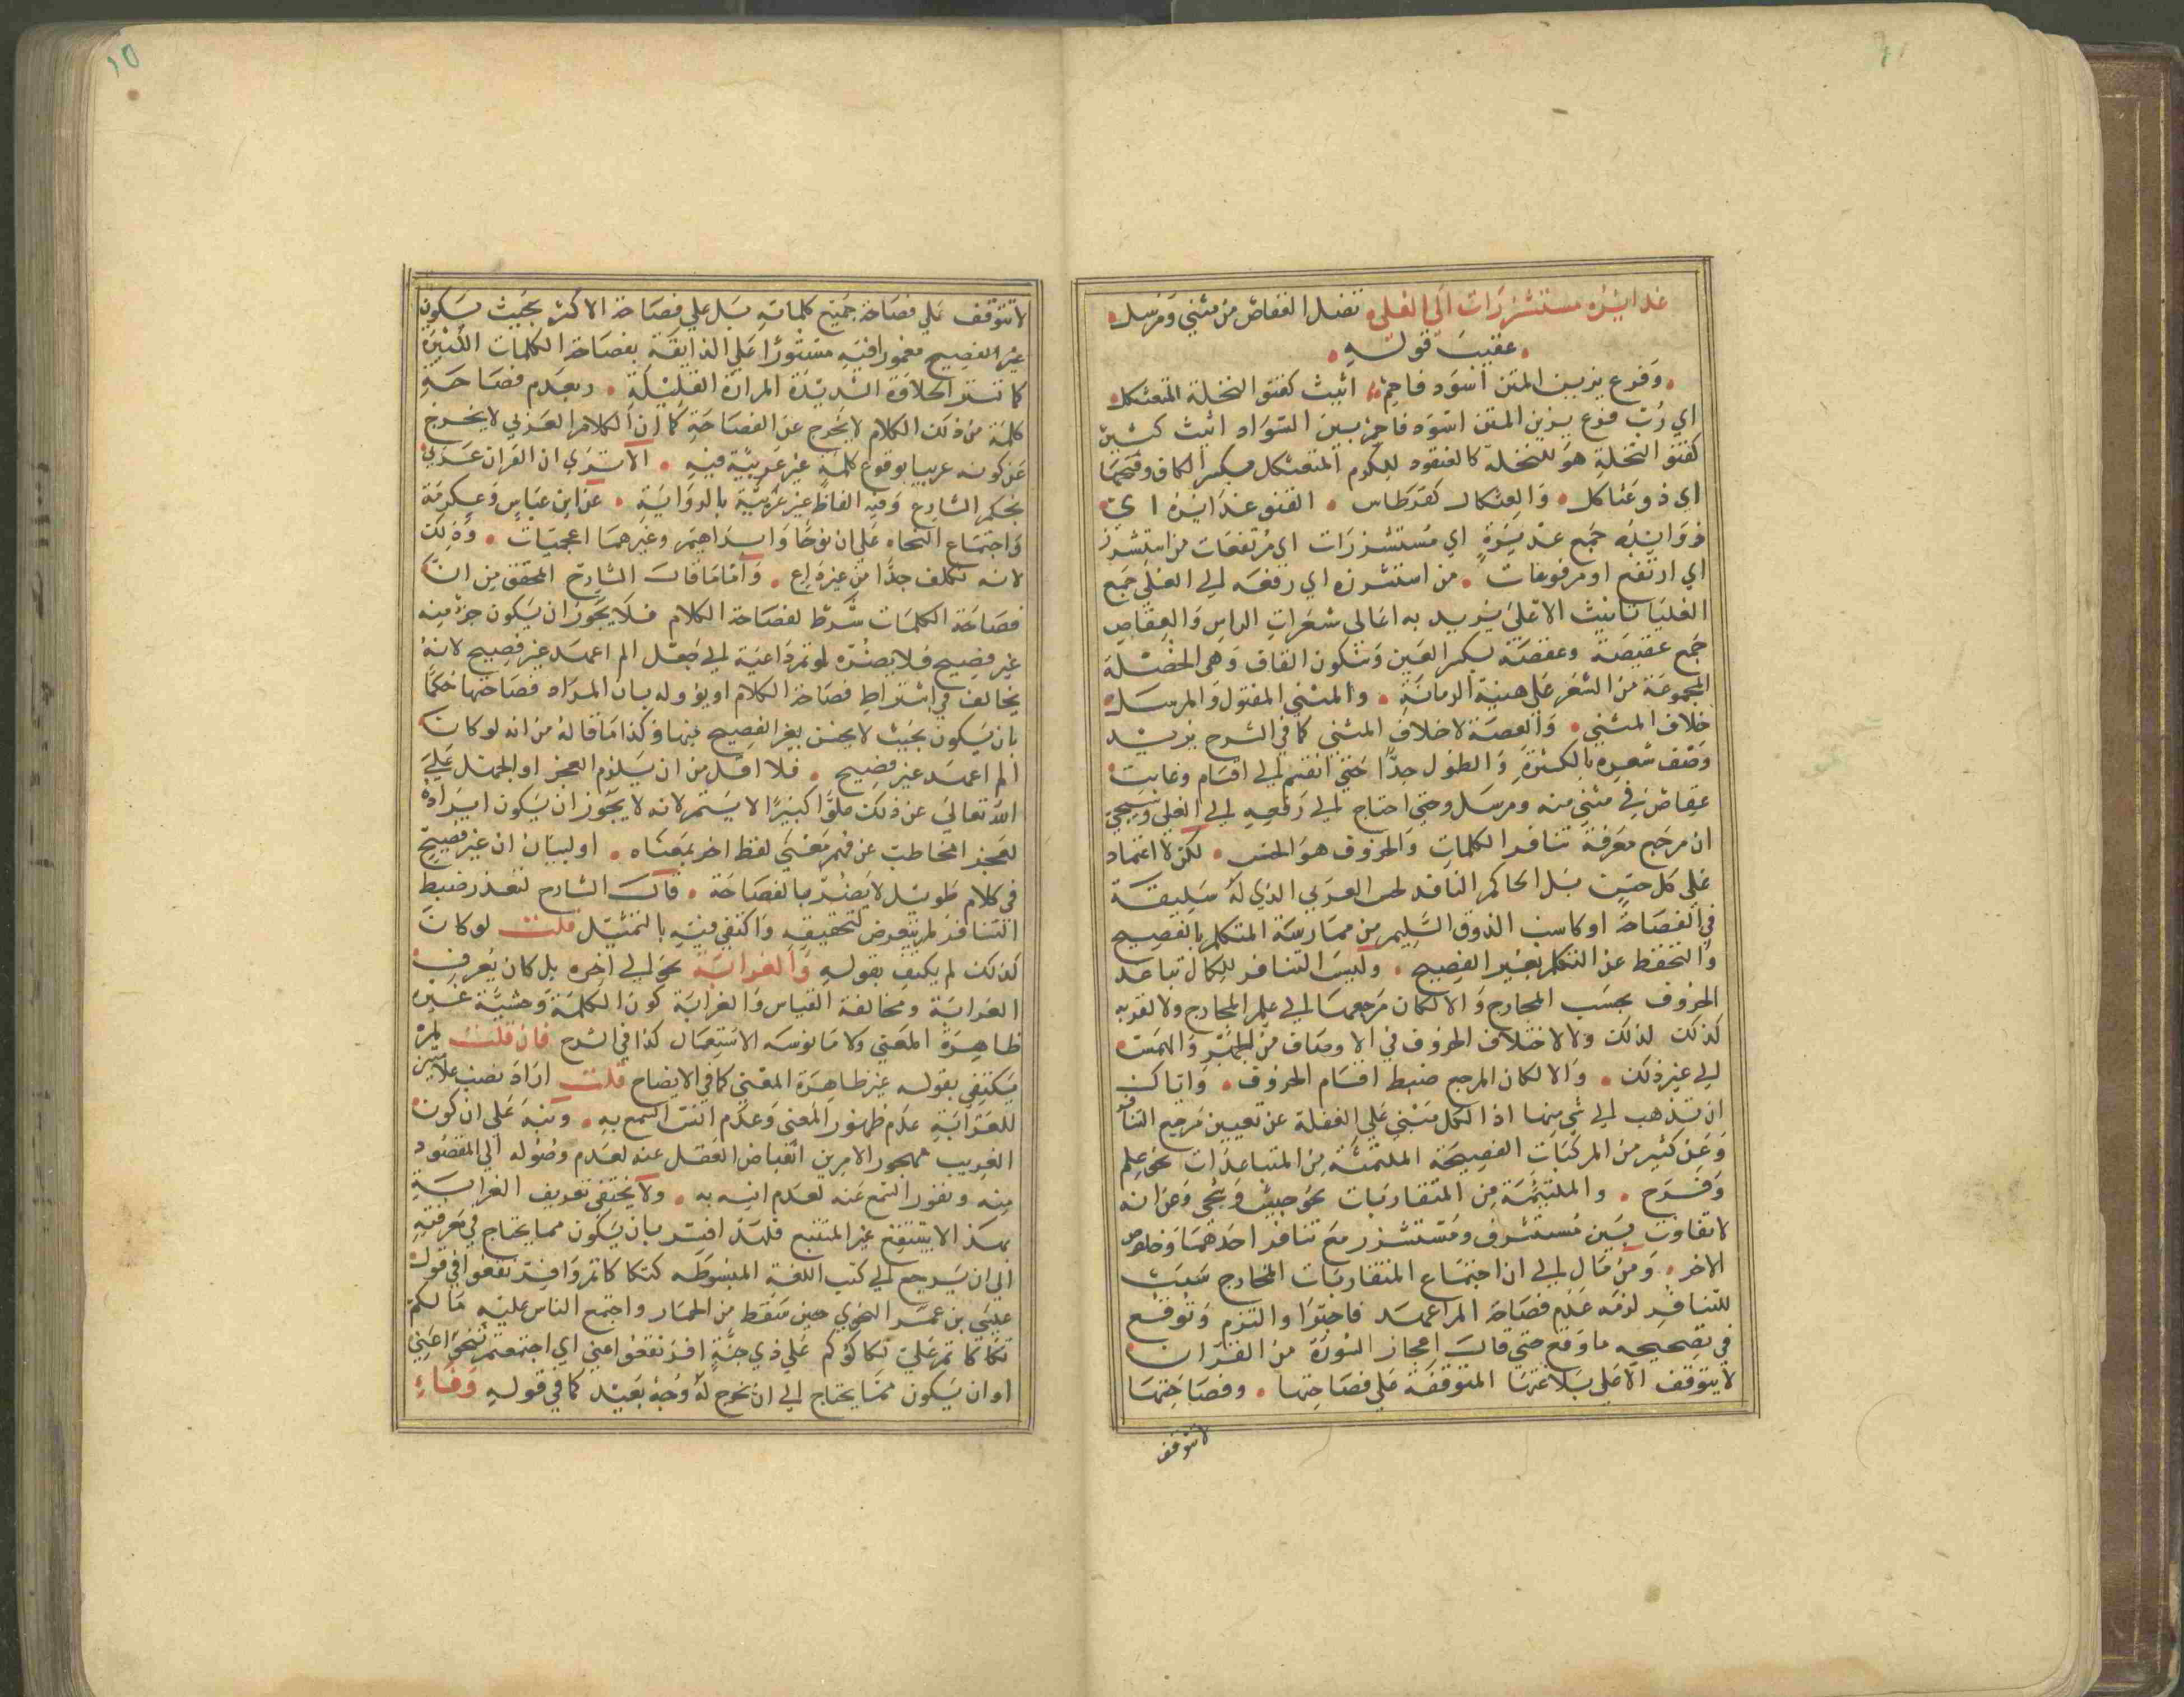 غدائره مستشزرات الى العلى تضل العقاص من مثني ومرسل
عقيب قوله
وفرع يزين المتن اسود فاحم اثيث كقنو النخلة المتعثكل
اي رب فرع يزين المتن اسود فاحم بين السواد اثيث كثير
كقنو النخلة هو للنخلة كالعنقود للكرم المتعثكل بكسر الكاف وفتحها
اي ذو عثاكل والعثكال كقرطاس القنو غدائره اي
ذوائبه جمع غديرة اي مستشزرات اي مرتفعات من استشزر
اي ارتفع او مرفوعات من استشزره اي رفعه الى العلى جمع
العليا تانيث الاعلى يريد به اعالى شعرات الراس والعقاص
جمع عقيصة وعقصة بكسر العين وسكون القاف وهى الخصلة
المجموعة من الشعر على هيئة الرمانة والمثنى المفتول والمرسل
خلاف المثني والعصة لاخلاف المثنى كما في الشرح يريد
وصف شعره بالكثرة والطول جدا حتى انقسم الى اقسام وغابت
عقاص في مثني منه ومرسل وحتى احتاج الى رفعه الى العلى وسيجئ
ان مرجع معرفة تنافر الكلمات والحروف هو الحس لكن لا اعتماد
على كل حس بل الحاكم الناقد لحس العربي الذي له سليقة
في الفصاحة او كاسب الذوق السليم من ممارسة المتكلم بالفصيح
والتحفظ عن التكلم بغير الفصيح وليس التنافر لكمال تباعد
الحروف بحسب المخارج والا لكان مرجعها الى علم المخارج ولا لقربه
كذلك لذلك ولا لاختلاف الحروف في الاوصاف من الجهر والهمس
الى غير ذلك والا لكان المرجع ضبط اقسام الحروف واياك
ان تذهب الى شي منها اذ الكل مبني على الغفلة عن تعيين مرجع التنافر
وعن كثير من المركبات الفصيحة الملتئمة من المتباعدات نحو علم
وفرح والملتئمة من المتقاربات نحو جيش وشجي وعن انه
لا تفاوت بين مستشرف ومستشزر مع تنافر احدهما وخلوص
الاخر ومن قال الى ان اجتماع المتقاربات المخارج سبب
للتنافر لزمه عدم فصاحة الم اعهد فاجتوا والتزم ووقع
في تصحيحه ما وقع حتى قال اعجاز السورة من القران
لا يتوقف الا على بلاغتها المتوقفة على فصاحتها وفصاحتها
لا تتوقف
لا تتوقف على فصاحة جميع كلماته بل على فصاحة الاكثر بحيث يكون
غير الفصيح مغمورا فيه مستورا على الذايقة بفصاحة الكلمات الكثيرة
كما تستر الحلاوة الشديدة المرارة القليلة وبعدم فصاحة
كلمة من ذلك الكلام لا يخرج عن الفصاحة كما ان الكلام العربي لا يخرج
عن كونه عربيا بوقوع كلمة غير عربية فيه الا ترى ان القران عربي
بحكم الشارع وفيه الفاظ غير عربية بالرواية عن ابن عباس وعكرمة
واجتماع النحاه على ان نوحا وابراهيم وغيرهما اعجميات وذلك
لانه تكلف جدا من غير داع واما ما قال الشارح المحقق من ان
فصاحة الكلمات شرط لفصاحة الكلام فلا يجوز ان يكون جزء منه
غير فصيح فلا يضره لو تم داعية الى جعل الم اعهد غير فصيح لانه
يخالف في اشتراط فصاحة الكلام او يؤوله بان المراد فصاحتها حكما
بان يكون بحيث لا يحس بغير الفصيح فيها وكذا ما قاله من انه لو كان
الم اعهد غير فصيح فلا اقل من ان يلزم العجز او الجهل على
الله تعالى عن ذلك علوا كبيرا لا يستمر لانه لا يجوز ان يكون ايراده
لعجز المخاطب عن فهم معنى لفظ اخر بمعناه او لبيان ان غير فصيح
في كلام طويل لا يضر بالفصاحة قال الشارح لتعذر ضبط
التنافر لم يتعرض لتحقيقه واكتفى فيه بالتمثيل قلت لو كان
كذلك لم يكتف بقوله والغرابة نحو الى اخره بل كان يعرف
الغرابة ومخالفة القياس والغرابة كون الكلمة وحشية غير
ظاهرة المعنى ولا مانوسه الاستعمال كذا في الشرح فان قلت لم
يكتفى بقوله غير ظاهرة المعنى كما في الايضاح قلت اراد نصب علامتين
للغرابة عدم ظهور المعنى وعدم الفت السمع به ونبه على ان كون
الغريب مهجور الامرين انقباض العقل عنه لعدم وصوله الى المقصود
منه ونفور السمع عنه لعدم انسه به ولا يختفى تعريف الغرابة
بهذا الا ينتفع غير المتتبع فلهذا فسر بان يكون مما يحتاج في معرفته
الى ان يرجع الى كتب اللغة المبسوطه كتكاكاتم وافرنقعوا في قول
عيسى بن عمر النحوي حين سقط من الحمار واجتمع الناس عليه مالكم
تكاكاتم علي تكاكؤكم على ذي جنة افرنقعوا عني اي اجتمعتم تنحوا عني
او ان يكون مما يحتاج الى ان يخرج له وجه بعيد كما في قوله وفاء